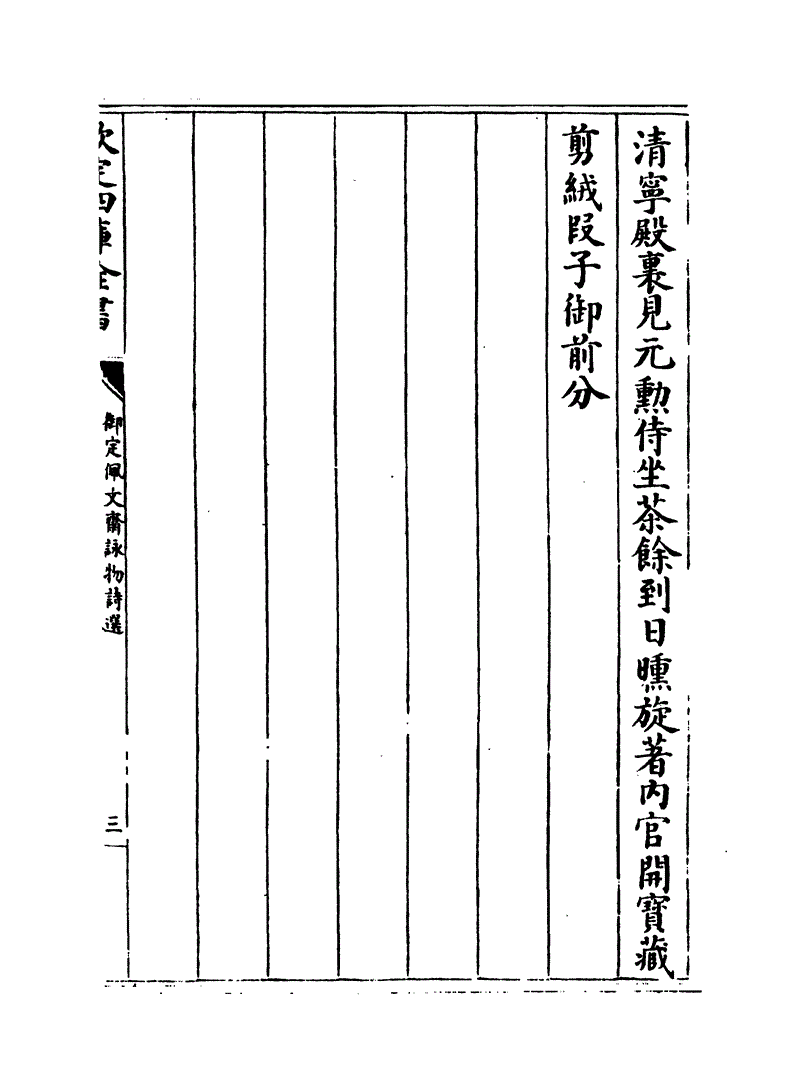 清寧殿裏見元勲侍坐茶餘到日曛旋著内官開寶藏
剪絨段子御前分
欽定四庫全書
御定佩文齋詠物詩選
三